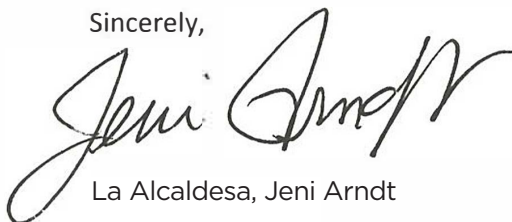 Sincerely,
Jeni Arndt
La Alcaldesa, Jeni Arndt